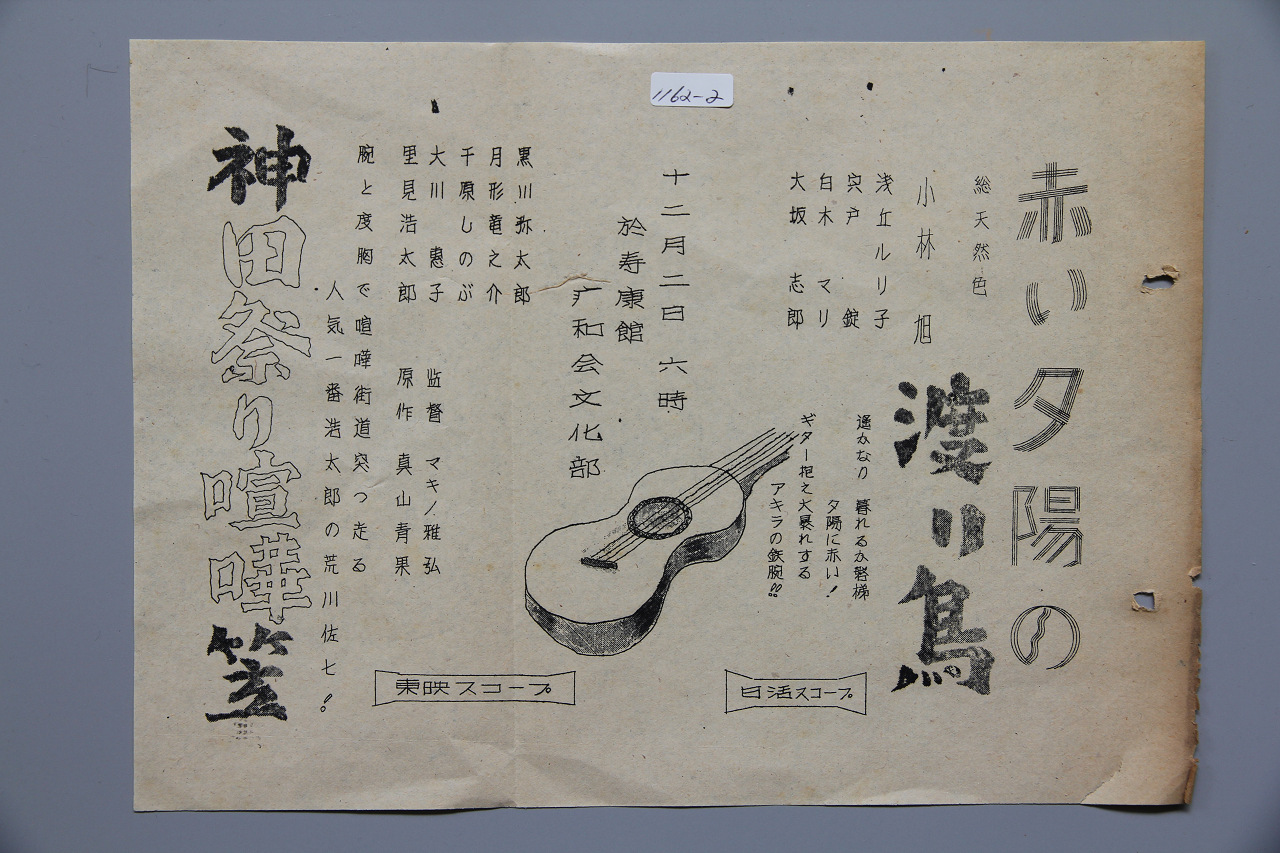 1162-2
赤い夕陽の
渡り鳥
総天然色
小林 旭
浅丘ルリ子
宍戸 錠
白木 マリ
大坂 志郎
遥かなり 暮れるか磐梯
夕陽に赤い!
ギター抱え大暴れする
アキラの鉄腕!!
日活スコープ
十二月二日 六時
於寿康館
疒和会文化部
黒川弥太郎
月形竜之介
千原しのぶ
大川 惠子
里見浩太郎
监督 マキノ雅弘
原作 真山青果
腕と度胸で喧嘩街道突っ走る
人気一番浩太郎の荒川佐七!!
東映スコープ
神田祭り喧嘩笠